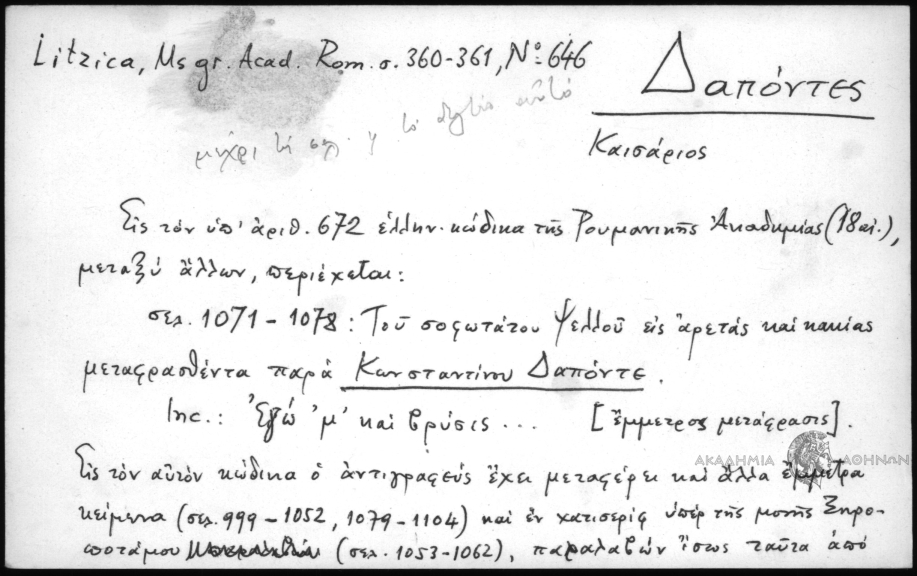 Litzica, Ms gr. Acad. Rom. σ. 360-361, Nº 646
Δαπόντες
μέχρι τη σελ.
Καισάριος
Εἰς τὸν ὑπ' ἀριθ. 672 ἑλλην. κώδικα τῆς Ρουμανικῆς Ἀκαδημίας (18 αἰ.),
μεταξὺ ἄλλων, περιέχεται:
σελ. 1071-1078: Τοῦ σοφωτάτου Ψελλοῦ εἰς ἀρετάς καὶ κακίας
μεταφρασθέντα παρὰ Κωνσταντίνου Δαπόντε.
Inc.: Ἐγώ 'μ' καὶ βρύσις ... [ἔμμετρος μετάφρασις].
ΑΚΑΔΗΜΙΑ ΑΘΗΝΩΝ
Εἰς τὸν αὐτὸν κώδικα ὁ ἀντιγραφεὺς ἔχει μεταφέρει καὶ ἄλλα ἔμμετρα
κείμενα (σελ. 999-1052, 1079-1104) καὶ ἓν χατισερίφ ὑπὲρ τῆς μονῆς Ξηρο-
ποτάμου (σελ. 1053-1062), παραλαβὼν ἴσως ταῦτα ἀπό